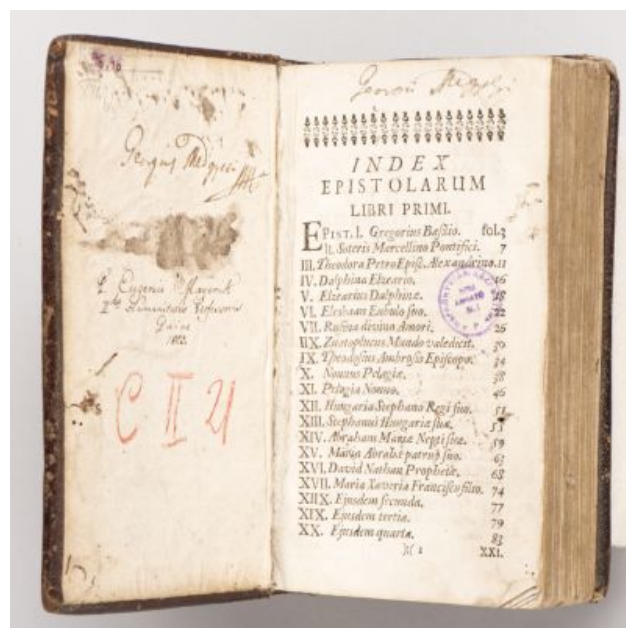 C II 21
INDEX
EPISTOLARUM
LIBRI PRIMI.
EPIST. I. Gregorius Basilio. fol. 3
II. Soteris Marcellino Pontifici. 7
III. Theodora Petro Episc. Alexandrino. 11
IV. Dalphina Elzeario. 16
V. Elzearius Dalphinæ. 18
VI. Elesbaan Eubulo suo. 22
VII. Rosina divino Amori. 26
IIX. Mundo valedicit. 30
IX. Theodosius Ambrosio Episcopo. 34
X. Nonnus Pelagiæ. 38
XI. Pelagia Nonno. 46
XII. Hungaria Stephano Regi suo. 51
XIII. Stephanus Hungariæ suæ. 53
XIV. Abraham Mariæ Nepti suæ. 59
XV. Maria Abrahæ patruo suo. 63
XVI. David Nathan Prophetæ. 68
XVII. Maria Xaveria Francisco suo. 74
XIIX. Ejusdem secunda. 77
XIX. Ejusdem tertia. 79
XX. Ejusdem quarta. 83
XXI.